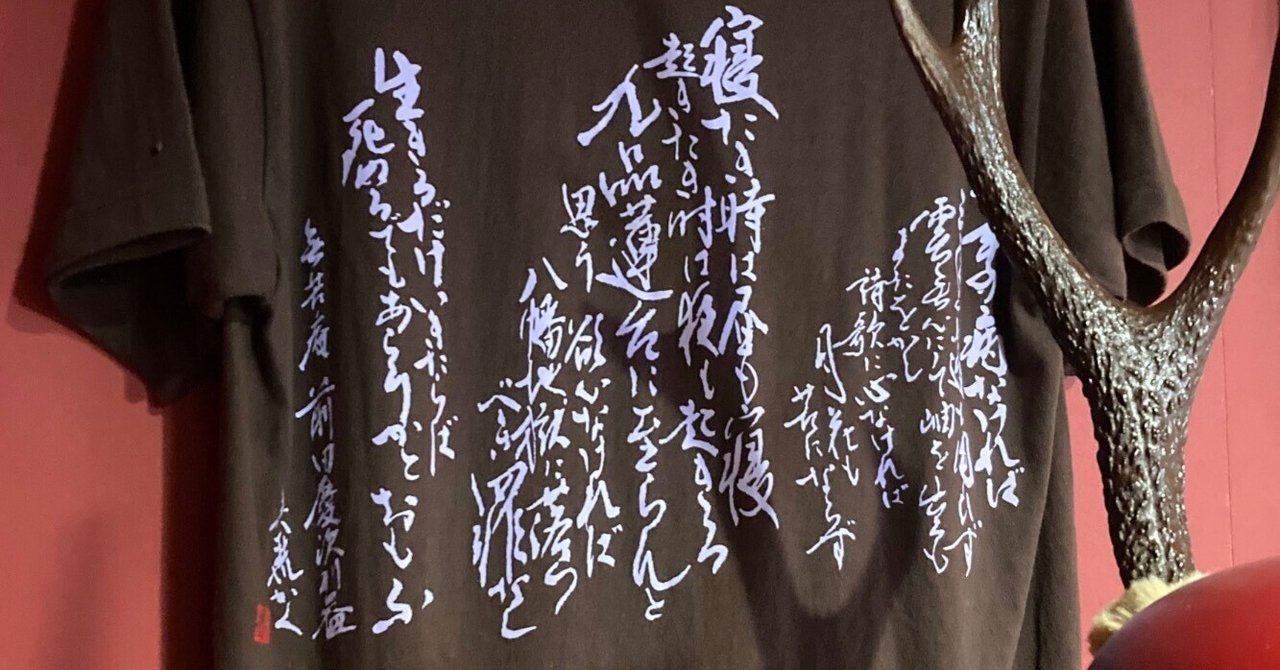 病なければ
雲無心にして岫を出るも
またをかし
詩歌に心なければ
月花も
苦にならず
寝たき時は昼も寝
起きたき時は夜も起きる
九品蓮台に至らんと
思う
欲心なければ
八幡地獄に落つ
べき罪なし
生きるだけいきたらば
死ぬるでもあらうかとおもふ
無苦庵 前田慶次利益